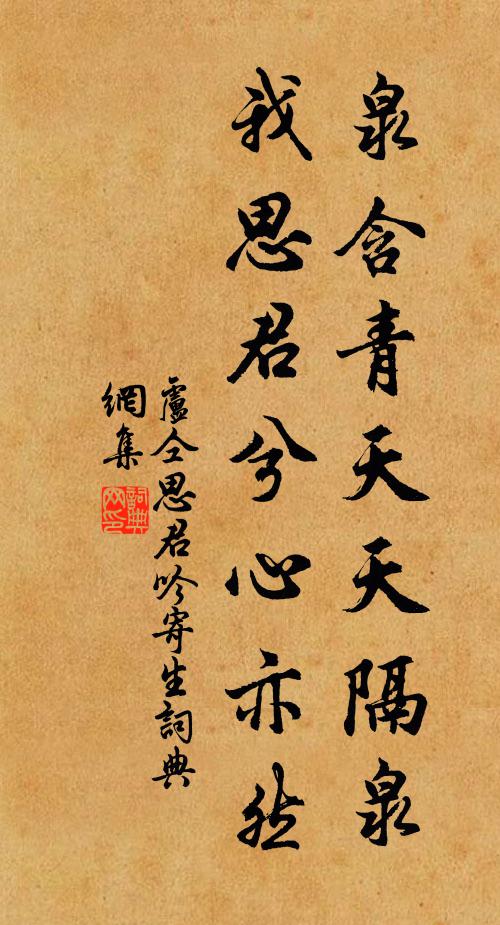 泉含青天天隔泉
我思君兮心亦然
盧仝思君吟寄生詞典
網集
詞典
网印